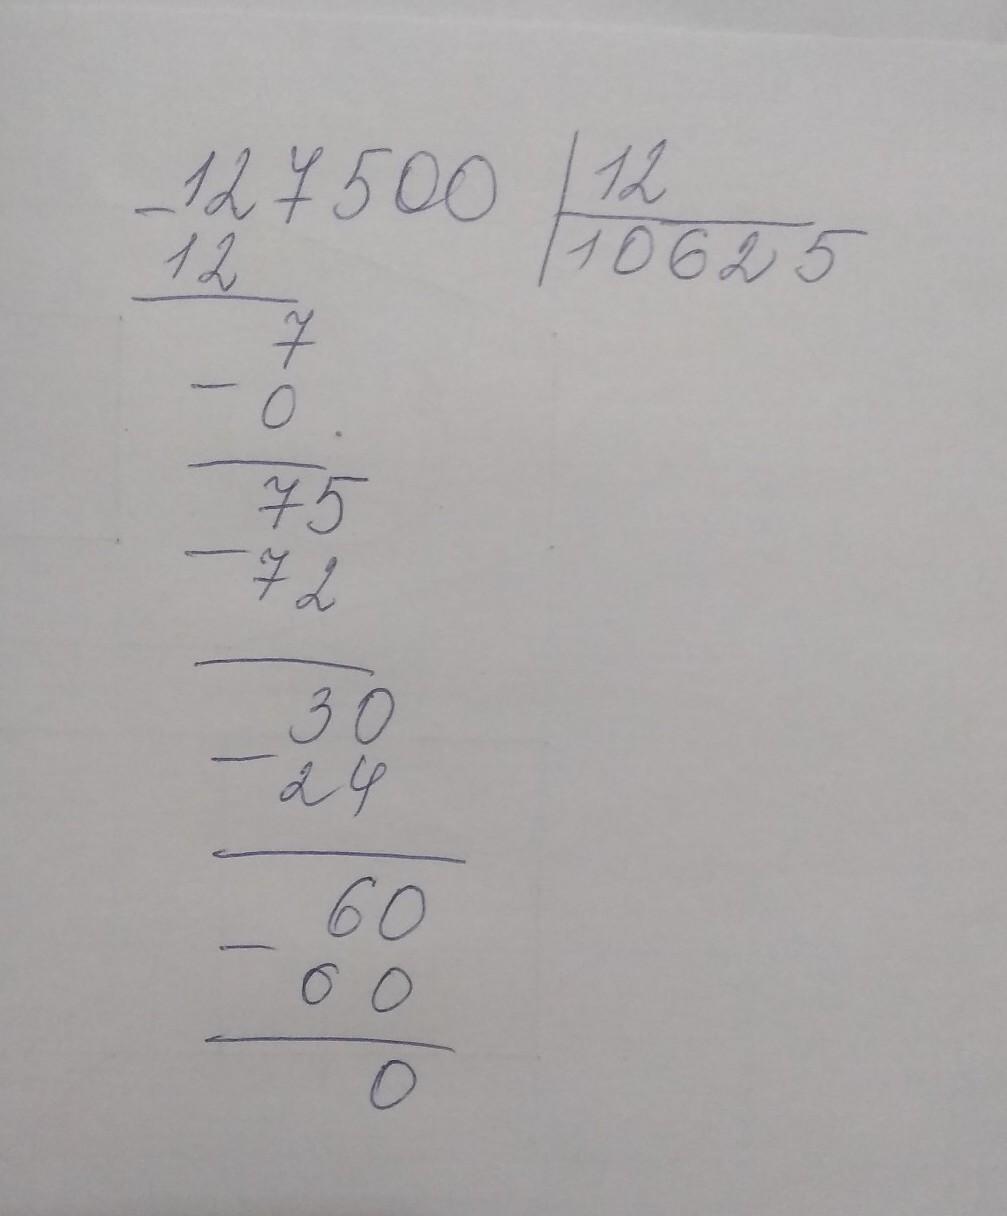 -127500 | 12
12 10625
7
- 0
75
- 72
30
- 24
60
- 60
0